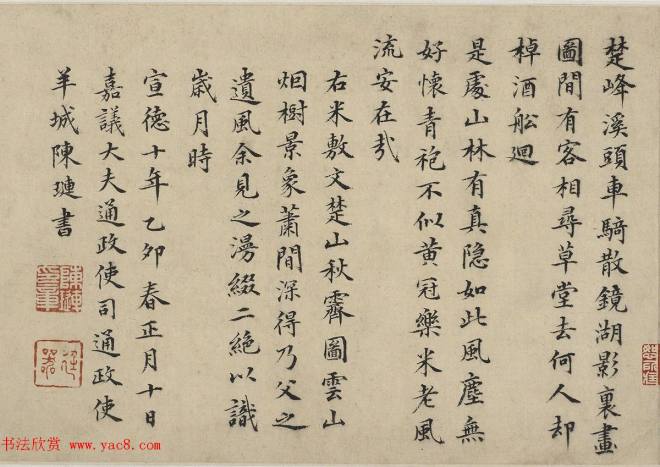 楚峰溪頭車騎散鏡湖影裏畫
圖間有客相尋草堂去何人却
棹酒舩迴
是處山林有真隐如此風塵無
好懷青袍不似黃冠樂米老風
流安在㢤
右米敷文楚山秋霽圖雲山
烟樹景象蕭閒深得乃父之
遺風余見之漫綴二絶以識
歲月時
宣德十年乙卯春正月十日
嘉議大夫通政使司通政使
羊城陳璉書
陳璉
书法欣赏 www.yac8.com